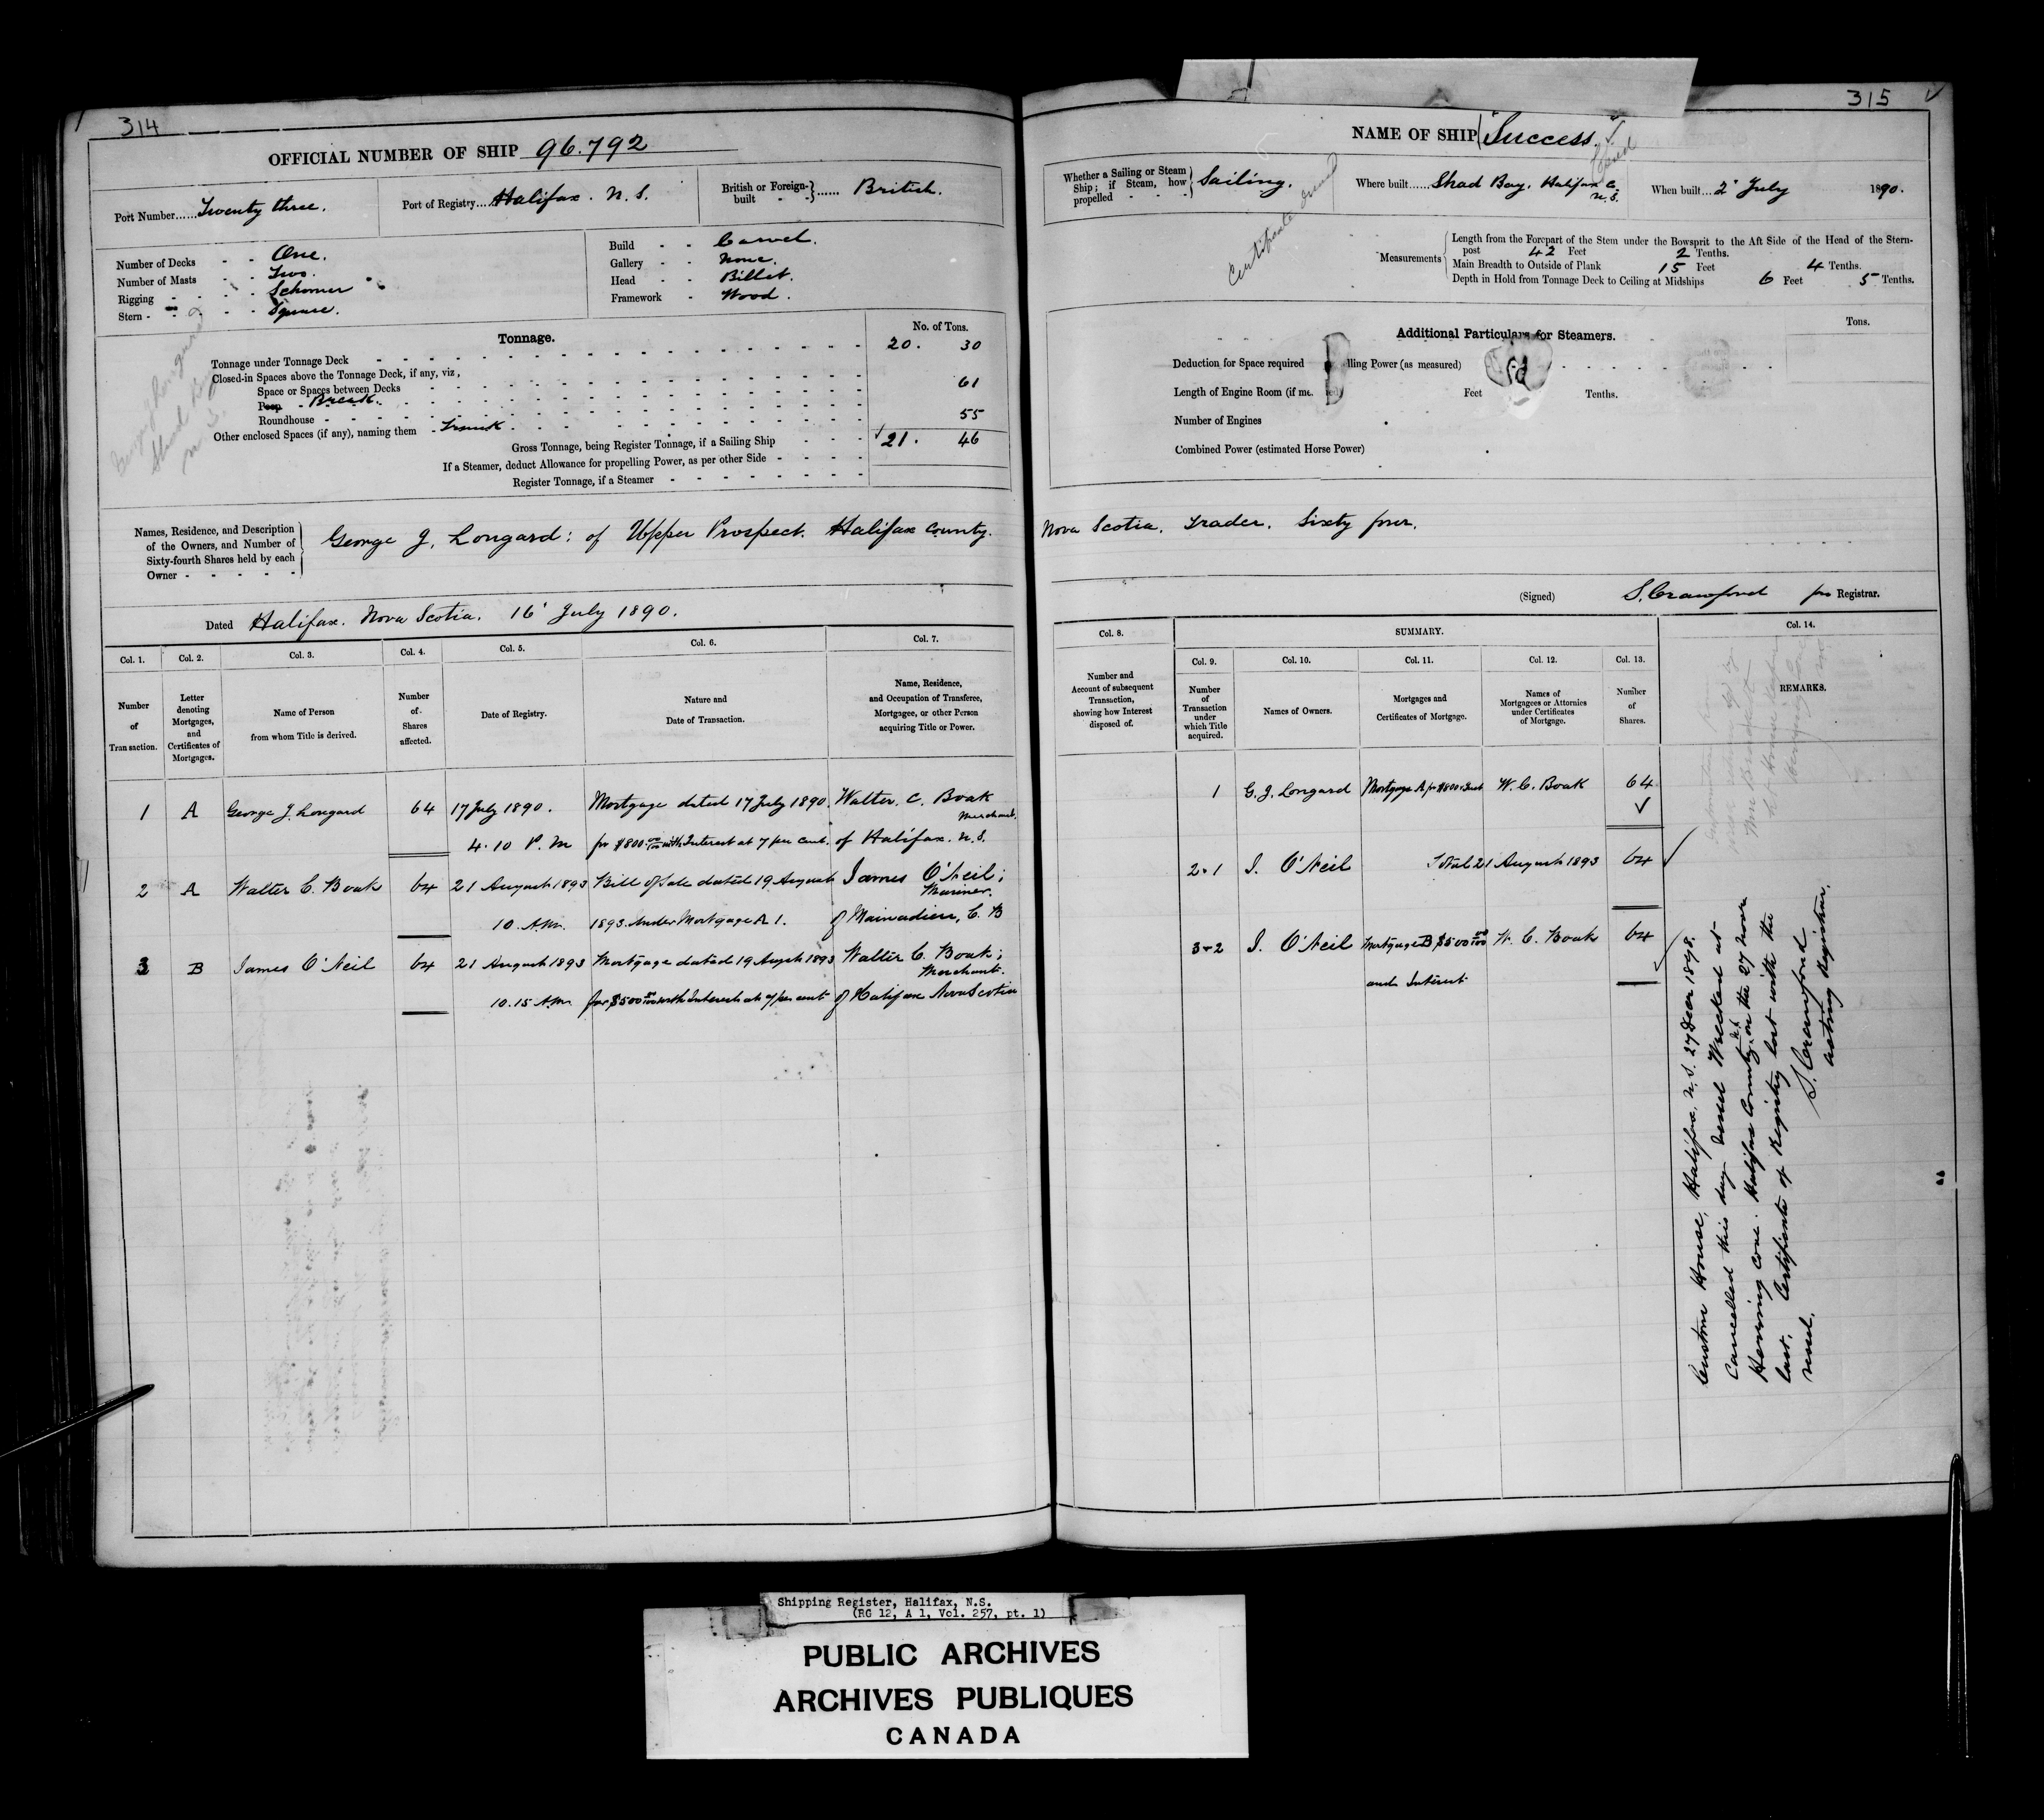 314
OFFICIAL NUMBER OF SHIP 96.792
Port Number......Twenty three.
Port of Registry...Halifax. N.S.
British or Foreign-built - -}...... British.
Number of Decks - - One.
Number of Masts - - Two.
Rigging - - - - Schooner
Stern - - - - Square.
Build - - Carvel.
Gallery - - None.
Head - - Billet.
Framework - Wood.
Tonnage.
No. of Tons.
Tonnage under Tonnage Deck 20. 30
Closed-in Spaces above the Tonnage Deck, if any, viz,
Space or Spaces between Decks
Poop Break. 61
Roundhouse
Other enclosed Spaces (if any), naming them Trunk 55
Gross Tonnage, being Register Tonnage, if a Sailing Ship 21. 46
If a Steamer, deduct Allowance for propelling Power, as per other Side
Register Tonnage, if a Steamer
Names, Residence, and Description
of the Owners, and Number of
Sixty-fourth Shares held by each
Owner - - - - -
George J. Longard: of Upper Prospect. Halifax County.
Dated Halifax. Nova Scotia. 16' July 1890.
Col. 1. Col. 2. Col. 3. Col. 4. Col. 5. Col. 6. Col. 7.
Number of Transaction.
Letter denoting Mortgages, and Certificates of Mortgages.
Name of Person from whom Title is derived.
Number of Shares affected.
Date of Registry.
Nature and Date of Transaction.
Name, Residence, and Occupation of Transferee, Mortgagee, or other Person acquiring Title or Power.
1 A George J. Longard 64 17 July 1890. Mortgage dated 17 July 1890. Walter. C. Boak
Merchant.
4.10 P.M for $800 00/100 with Interest at 7 per cent. of Halifax. N.S.
2 A Walter C. Boak 64 21 August 1893 Bill of Sale dated 19 August James O'Neil;
Mariner.
10. A.M. 1893. under Mortgage A 1. of Mainadieu, C. B
3 B James O'Neil 64 21 August 1893 Mortgage dated 19 August 1893 Walter C. Boak;
Merchant.
10.15 A.M. for $500 00/100 with Interest at 7 per cent of Halifax Nova Scotia
315
NAME OF SHIP "Success."
Closed
Whether a Sailing or Steam Ship; if Steam, how propelled - - -} Sailing.
Where built......Shad Bay, Halifax C.
N.S.
When built...2' July 1890.
Certificate
Measurements
Length from the Forepart of the Stem under the Bowsprit to the Aft Side of the Head of the Stern-
post 42 Feet 2 Tenths.
Main Breadth to Outside of Plank 15 Feet 4 Tenths.
Depth in Hold from Tonnage Deck to Ceiling at Midships 6 Feet 5 Tenths.
Additional Particulars for Steamers.
Tons.
Deduction for Space required lling Power (as measured)
Length of Engine Room (if me. Feet Tenths.
Number of Engines
Combined Power (estimated Horse Power)
Nova Scotia. Trader. Sixty four.
(Signed) S. Crawford pro Registrar.
Col. 8. SUMMARY. Col. 14.
Col. 9. Col. 10. Col. 11. Col. 12. Col. 13.
Number and Account of subsequent Transaction, showing how Interest disposed of.
Number of Transaction under which Title acquired.
Names of Owners.
Mortgages and Certificates of Mortgage.
Names of Mortgagees or Attornies under Certificates of Mortgage.
Number of Shares.
REMARKS.
1 G. J. Longard Mortgage A for $800 & Int W. C. Boak 64
2.1 J. O'Neil Total 21 August 1893 64
3-2 J. O'Neil Mortgage B $500 00/100 W. C. Boak 64
and Interest
Custom House, Halifax, N.S. 27 Decr 1898.
Cancelled this day. Vessel Wrecked at
Herring Cove. Halifax County, N.S. on the 27 Novr
last. Certificate of Registry lost with the
vessel.
S. Crawford
Acting Registrar.
Shipping Register, Halifax, N.S.
(RG 12, A 1, Vol. 257, pt. 1)
PUBLIC ARCHIVES
ARCHIVES PUBLIQUES
CANADA